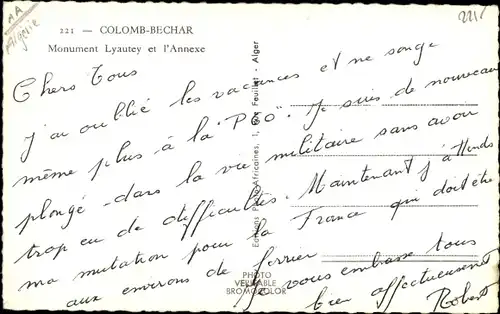 AA
Algérie
221
221 — COLOMB-BECHAR
Monument Lyautey et l'Annexe
Chers Tous
J'ai oublié les vacances et ne songe
même plus à la "P O". Je suis de nouveau
plongé dans la vie militaire sans avoir
trop eu de difficultés. Maintenant j'attends
ma mutation pour la France qui doit être
aux environs de février
Je vous embrasse tous
bien affectueusement
Robert
Editions Photo-Africaines, 1, Feuillet - Alger
PHOTO
VERITABLE
BROMOCOLOR